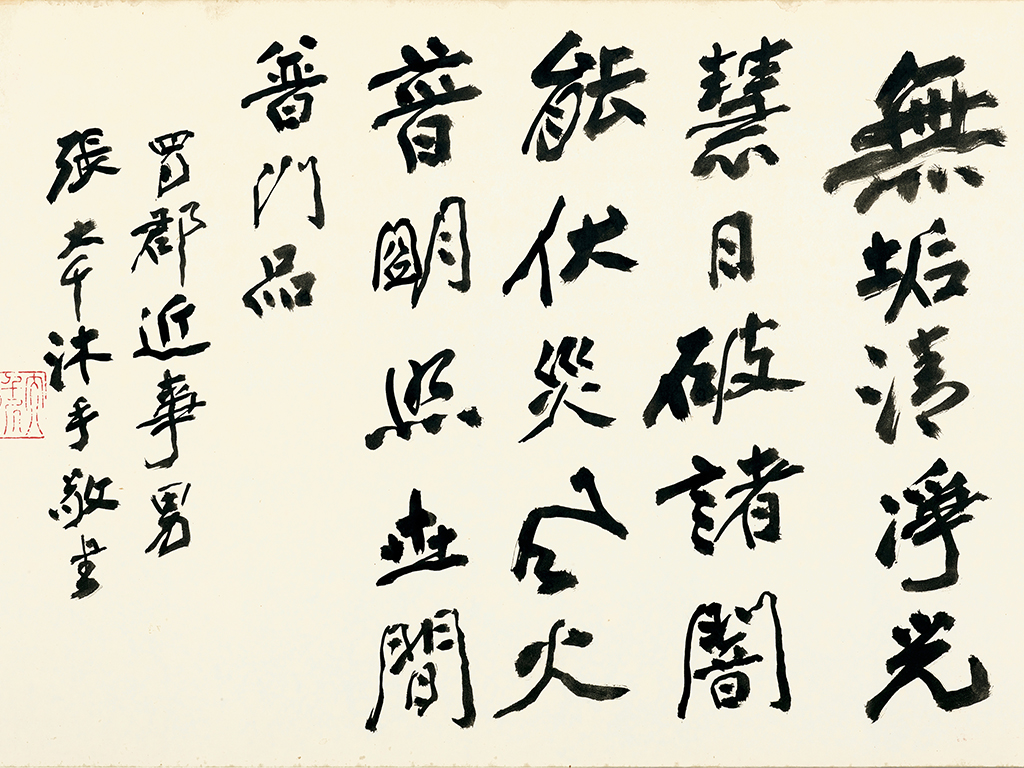 無垢清淨光
慧日破諸闇
能伏災風火
普明照世間
普門品
蜀郡近事男
張大千沐手敬書